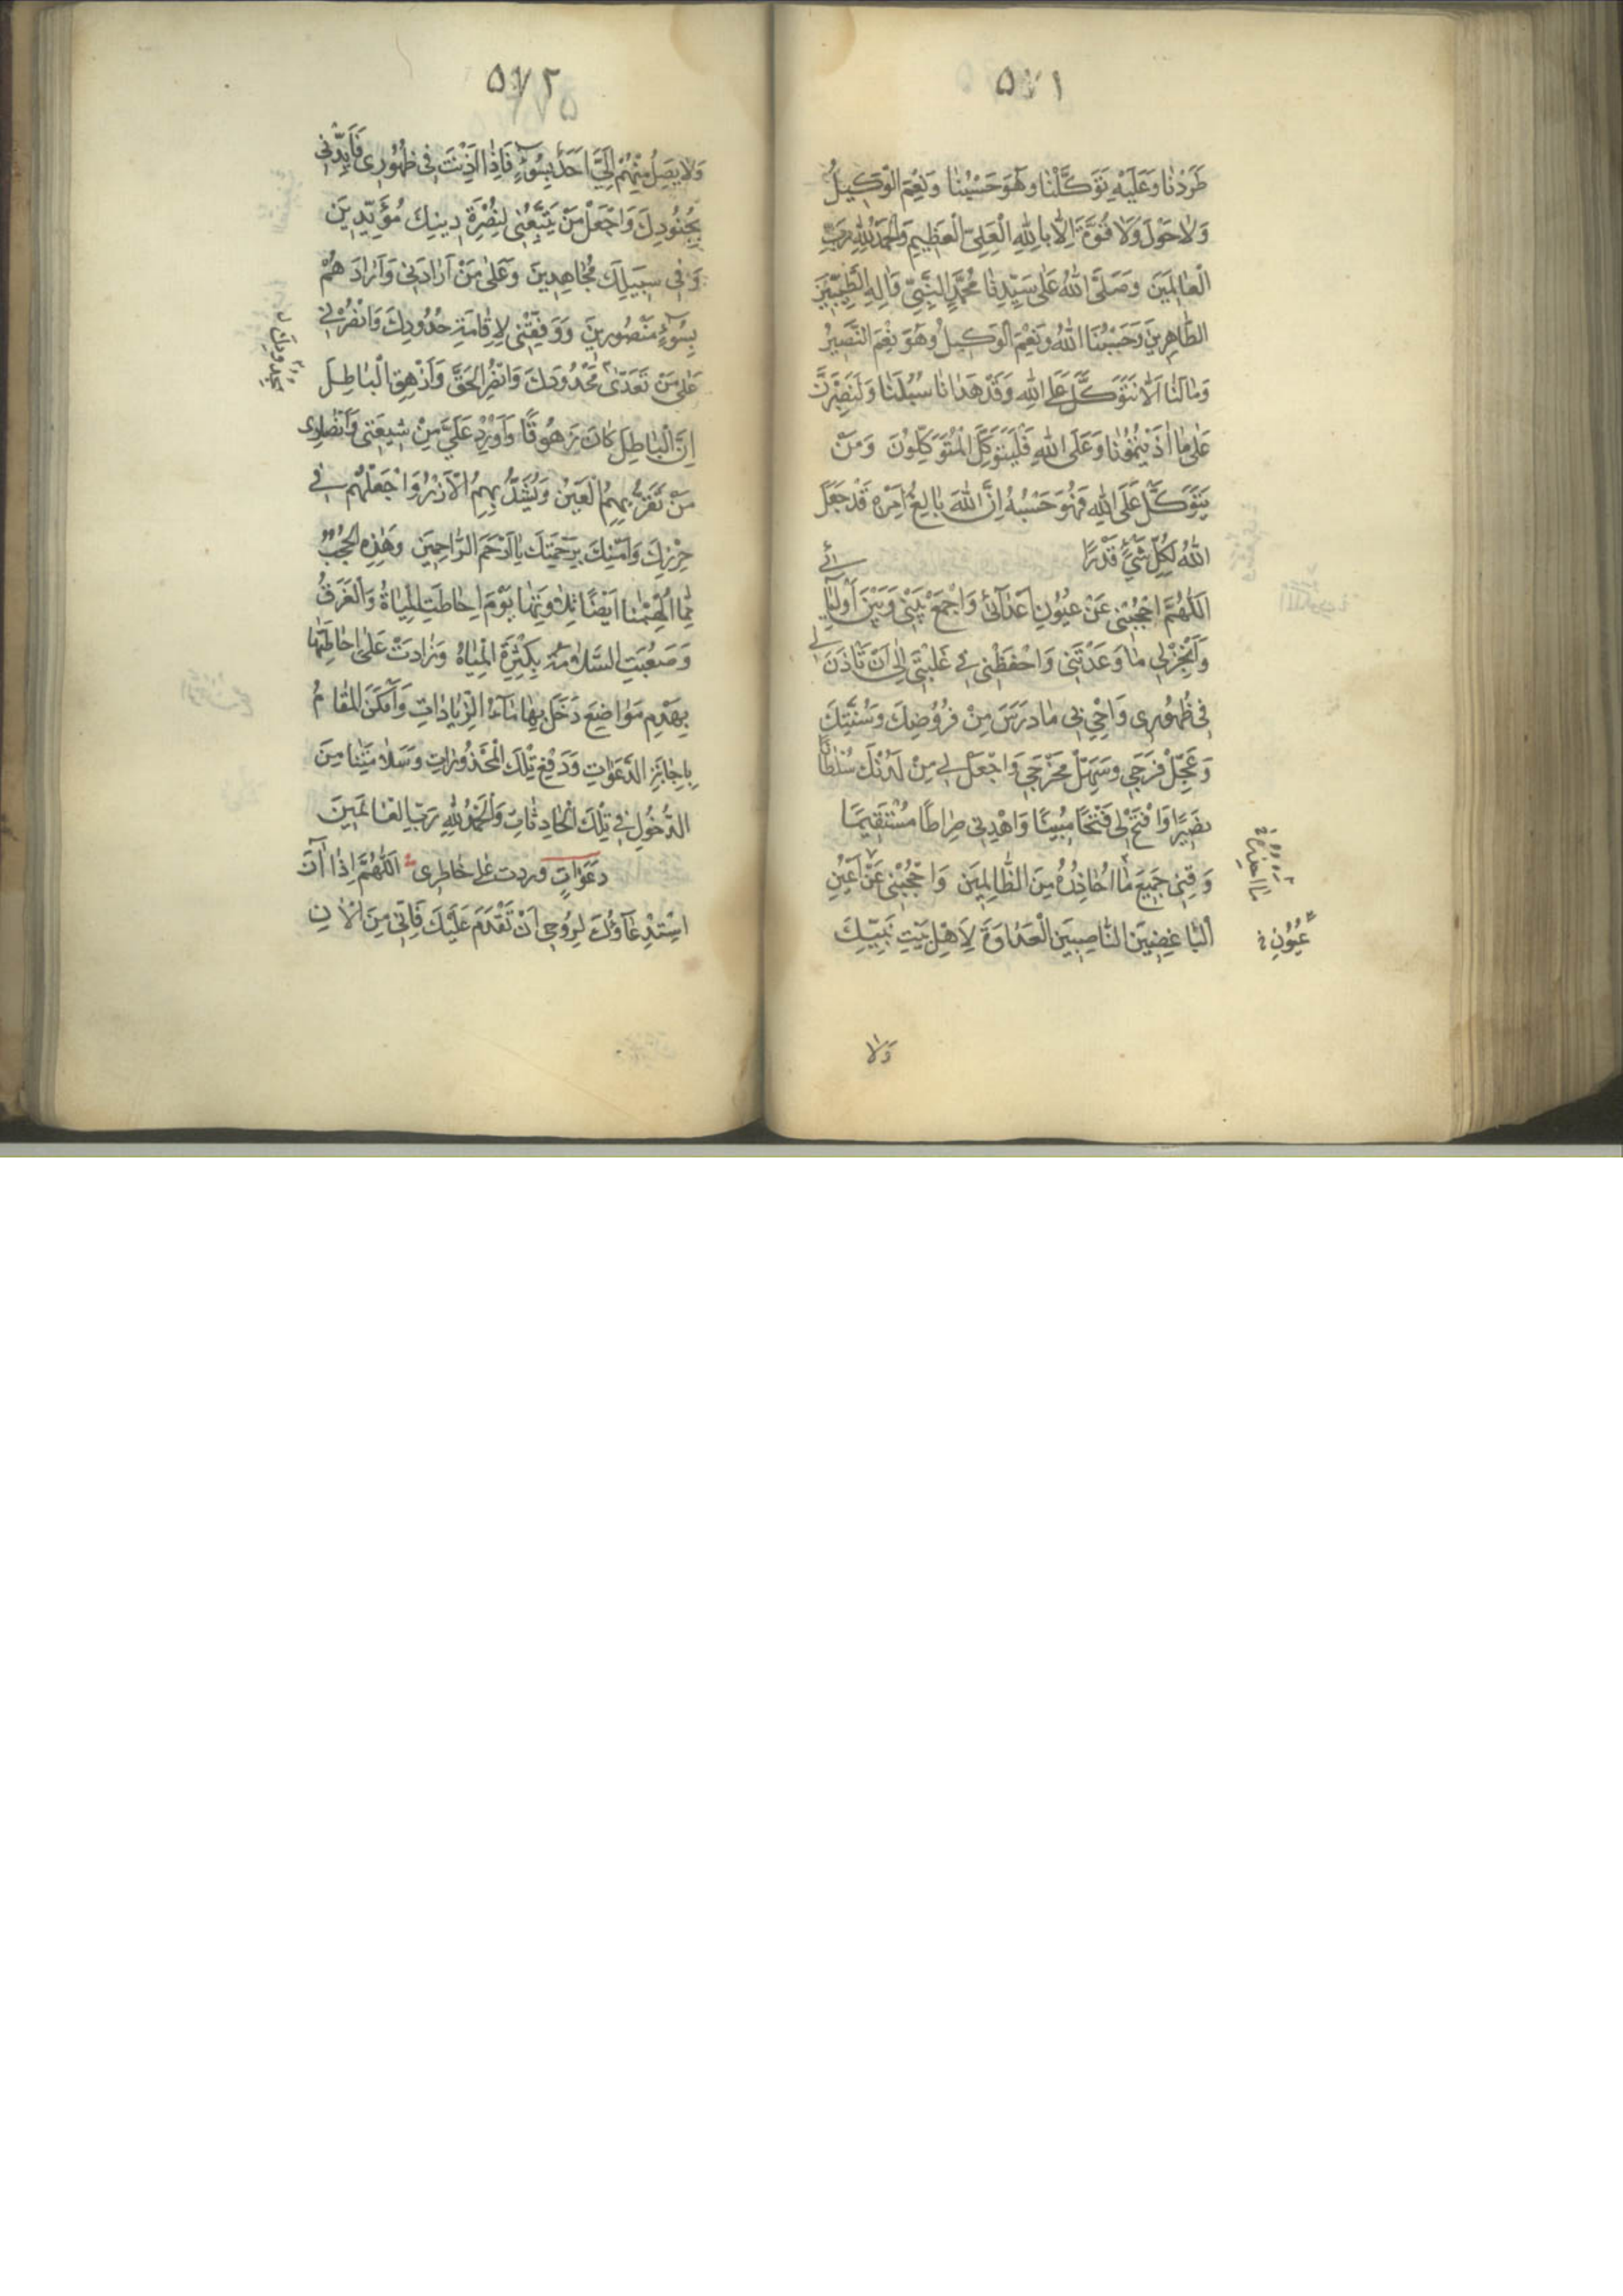 ٥٧١
طَرَدْنَا وَعَلَيْهِ تَوَكَّلْنَا وَهُوَ حَسْبُنَا وَنِعْمَ الْوَكِيلُ
وَلَا حَوْلَ وَلَا قُوَّةَ اِلَّا بِاللهِ الْعَلِيِّ الْعَظِيمِ وَالْحَمْدُ لِلّٰهِ رَبِّ
الْعَالَمِينَ وَصَلَّى اللهُ عَلَى سَيِّدِنَا مُحَمَّدٍ النَّبِيِّ وَالِهِ الطَّيِّبِينَ
الطَّاهِرِينَ وَحَسْبُنَا اللهُ وَنِعْمَ الْوَكِيلُ وَهُوَ نِعْمَ النَّصِيرُ
وَمَا لَنَا اَلَّا نَتَوَكَّلَ عَلَى اللهِ وَقَدْ هَدَانَا سُبُلَنَا وَلَنَصْبِرَنَّ
عَلَى مَا اذَيْتُمُونَا وَعَلَى اللهِ فَلْيَتَوَكَّلِ الْمُتَوَكِّلُونَ وَمَنْ
يَتَوَكَّلْ عَلَى اللهِ فَهُوَ حَسْبُهُ اِنَّ اللهَ بَالِغُ اَمْرِهِ قَدْ جَعَلَ
اللهُ لِكُلِّ شَيْءٍ قَدْرًا
اَللّٰهُمَّ احْجُبْنِي عَنْ عُيُونِ اَعْدَائِي وَاجْمَعْ بَيْنِي وَبَيْنَ اَوْلِيَائِي
وَاَنْجِزْ لِي مَا وَعَدْتَنِي وَاحْفَظْنِي فِي غَيْبَتِي اِلَى اَنْ تَأْذَنَ لِي
فِي ظُهُورِي وَاَحْيِ بِي مَا دَرَسَ مِنْ فُرُوضِكَ وَسُنَّتِكَ
وَعَجِّلْ فَرَجِي وَسَهِّلْ مَخْرَجِي وَاجْعَلْ لِي مِنْ لَدُنْكَ سُلْطَانًا
نَصِيرًا وَافْتَحْ لِي فَتْحًا مُبِينًا وَاهْدِنِي صِرَاطًا مُسْتَقِيمًا
وَقِنِي جَمِيعَ مَا اُحَاذِرُهُ مِنَ الظَّالِمِينَ وَاحْجُبْنِي عَنْ اَعْيُنِ
الْبَاغِضِينَ النَّاصِبِينَ الْعَدَاوَةَ لِاَهْلِ بَيْتِ نَبِيِّكَ
عُيُونِ
وَلَا
٥٧٢
وَلَا يَصِلُ مِنْهُمْ اِلَيَّ اَحَدٌ بِسُوءٍ فَاِذَا اَذِنْتَ فِي ظُهُورِي فَاَيِّدْنِي
بِجُنُودِكَ وَاجْعَلْ مَنْ يَتَّبِعُنِي لِنُصْرَةِ دِينِكَ مُؤَيَّدِينَ
وَفِي سَبِيلِكَ مُجَاهِدِينَ وَعَلَى مَنْ اَرَادَنِي وَاَرَادَهُمْ
بِسُوءٍ مَنْصُورِينَ وَوَفِّقْنِي لِاِقَامَةِ حُدُودِكَ وَانْصُرْنِي
عَلَى مَنْ تَعَدَّى مَحْدُودَكَ وَانْصُرِ الْحَقَّ وَاَزْهِقِ الْبَاطِلَ
اِنَّ الْبَاطِلَ كَانَ زَهُوقًا وَاَوْرِدْ عَلَيَّ مِنْ شِيعَتِي وَاَنْصَارِي
مَنْ تَقَرُّ بِهِمُ الْعَيْنُ وَيُشَدُّ بِهِمُ الْاَزْرُ وَاجْعَلْهُمْ فِي
حِرْزِكَ وَاَمْنِكَ بِرَحْمَتِكَ يَا اَرْحَمَ الرَّاحِمِينَ وَهٰذِهِ الْحُجُبُ
مِمَّا اُلْهِمْنَا اَيْضًا تِلَاوَتَهَا يَوْمَ اِحَاطَتِ الْمِيَاهُ وَالْغَرَقُ
وَصَعُبَتِ السَّلَامَةُ بِكَثْرَةِ الْمِيَاهِ وَزَادَتْ عَلَى اِحَاطَتِهَا
بِهَدْمِ مَوَاضِعَ دَخَلَ بِهَا مَاءُ الزِّيَادَاتِ وَاَمْكَنَ الْمُقَامُ
بِاِجَابَةِ الدَّعَوَاتِ وَدَفْعِ تِلْكَ الْمَحْذُورَاتِ وَسَلَامَتِنَا مِنَ
الدُّخُولِ فِي تِلْكَ الْحَادِثَاتِ وَالْحَمْدُ لِلّٰهِ رَبِّ الْعَالَمِينَ
دَعَوَاتٍ وردت على خَاطِرِي اَللّٰهُمَّ اِذَا آنَ
اسْتِدْعَاؤُكَ لِرُوحِي اَنْ تَقْدَمَ عَلَيْكَ فَاِنِّي مِنَ الْآنِ